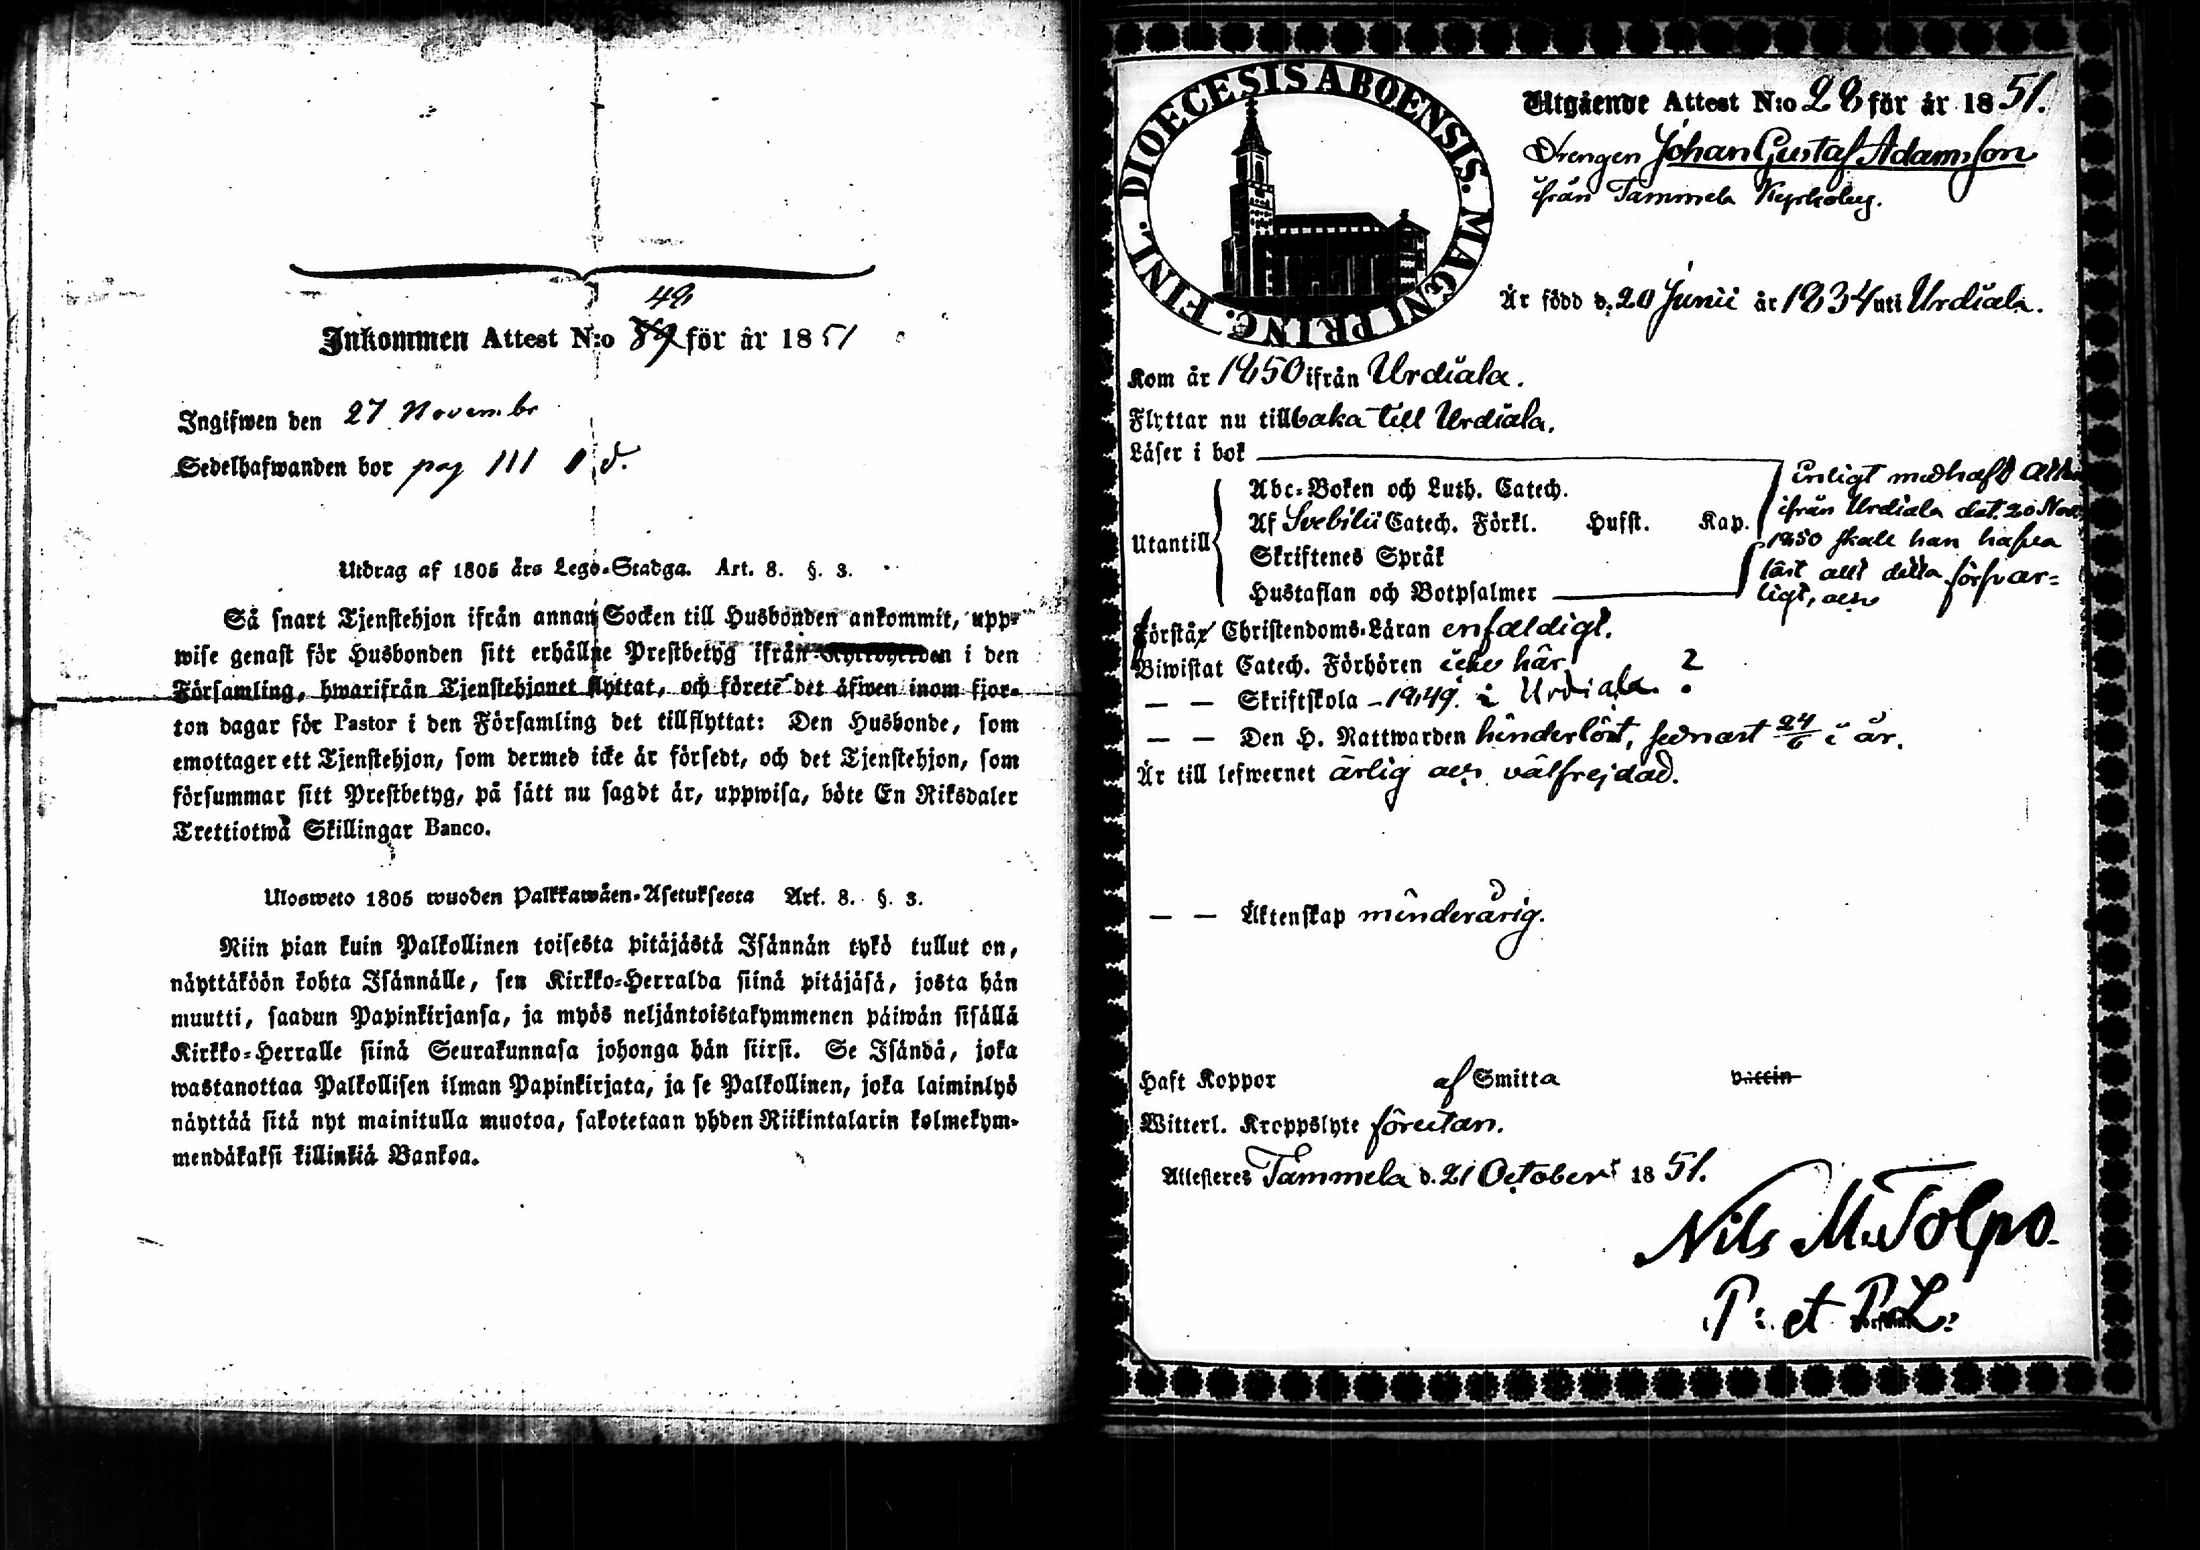 48
Inkommen Attest N:o 89 för år 1851
Ingifwen den 27 Novembr
Sedelhafwanden bor pag 111
Utdrag af 1805 års Lego-Stadga. Art. 8. §. 3.
Så snart Tjenstehjon ifrån annan Socken till Husbonden ankommit, upp-
wise genast för Husbonden sitt erhållne Prestbetyg ifrån Kyrkoherden i den
Församling, hwarifrån Tjenstehjonet flyttat, och förete det äfwen inom fjor-
ton dagar för Pastor i den Församling det tillflyttat: Den Husbonde, som
emottager ett Tjenstehjon, som dermed icke är försedt, och det Tjenstehjon, som
försummar sitt Prestbetyg, på sätt nu sagdt är, uppwisa, böte En Riksdaler
Trettiotwå Skillingar Banco.
Ulosweto 1805 wuoden Palkkawäen-Asetuksesta Art. 8. §. 3.
Niin pian kuin Palkollinen toisesta pitäjästä Isännän tykö tullut on,
näyttäköön kohta Isännälle, sen Kirkko-Herralda siinä pitäjäsä, josta hän
muutti, saadun Papinkirjansa, ja myös neljäntoistakymmenen päiwän sisällä
Kirkko-Herralle siinä Seurakunnasa johonga hän siirsi. Se Isändä, joka
wastanottaa Palkollisen ilman Papinkirjata, ja se Palkollinen, joka laiminlyö
näyttää sitä nyt mainitulla muotoa, sakotetaan yhden Riikintalarin kolmekym-
mendäkaksi killinkiä Bankoa.
DIOECESIS ABOENSIS. MAGNI PRINC. FINL.
Utgående Attest N:o 28 för år 1851.
Drengen Johan Gustaf Adamsson
ifrån Tammela Kyrkoby.
Är född d. 20 Junii år 1834 uti Urdiala.
Kom år 1850 ifrån Urdiala.
Flyttar nu tillbaka till Urdiala.
Läser i bok
Utantill
Abc-Boken och Luth. Catech.
Af Svebilii Catech. Förkl. Husst. Kap.
Skriftenes Språk
Hustaflan och Botpsalmer
Enligt medhaft
ifrån Urdiala dat. 20 Nov.
1850 skall han hafva
läst allt detta försvar-
ligt, och
förstår Christendoms-Läran enfaldigt.
Biwistat Catech. Förhören icke här.
— — Skriftskola 1849. i Urdiala. ?
— — Den H. Nattwarden hinderlöst, sednast 24/6 i år.
Är till lefwernet ärlig och välfrejdad.
— — Äktenskap minderårig.
Haft Koppor af Smitta Vaccin
Witterl. Kroppslyte förutan.
Attesteres Tammela d. 21 October 1851.
Nils M. Tolpo.
P: et P. L: